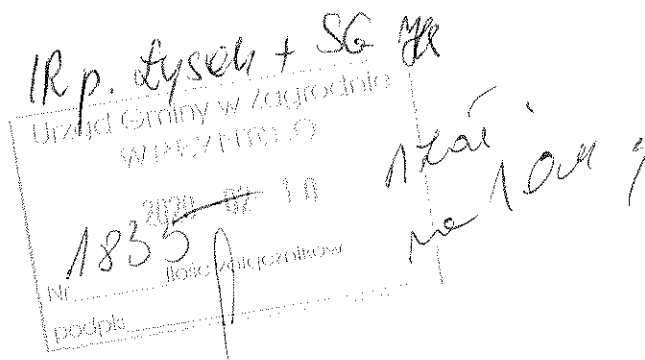 IR p. Łysek + SG
Urząd Gminy w Zagrodnie
WPŁYNĘŁO
2020 -02- 10
1835
Nr............ilość załączników
podpis
1 zał.
na 1